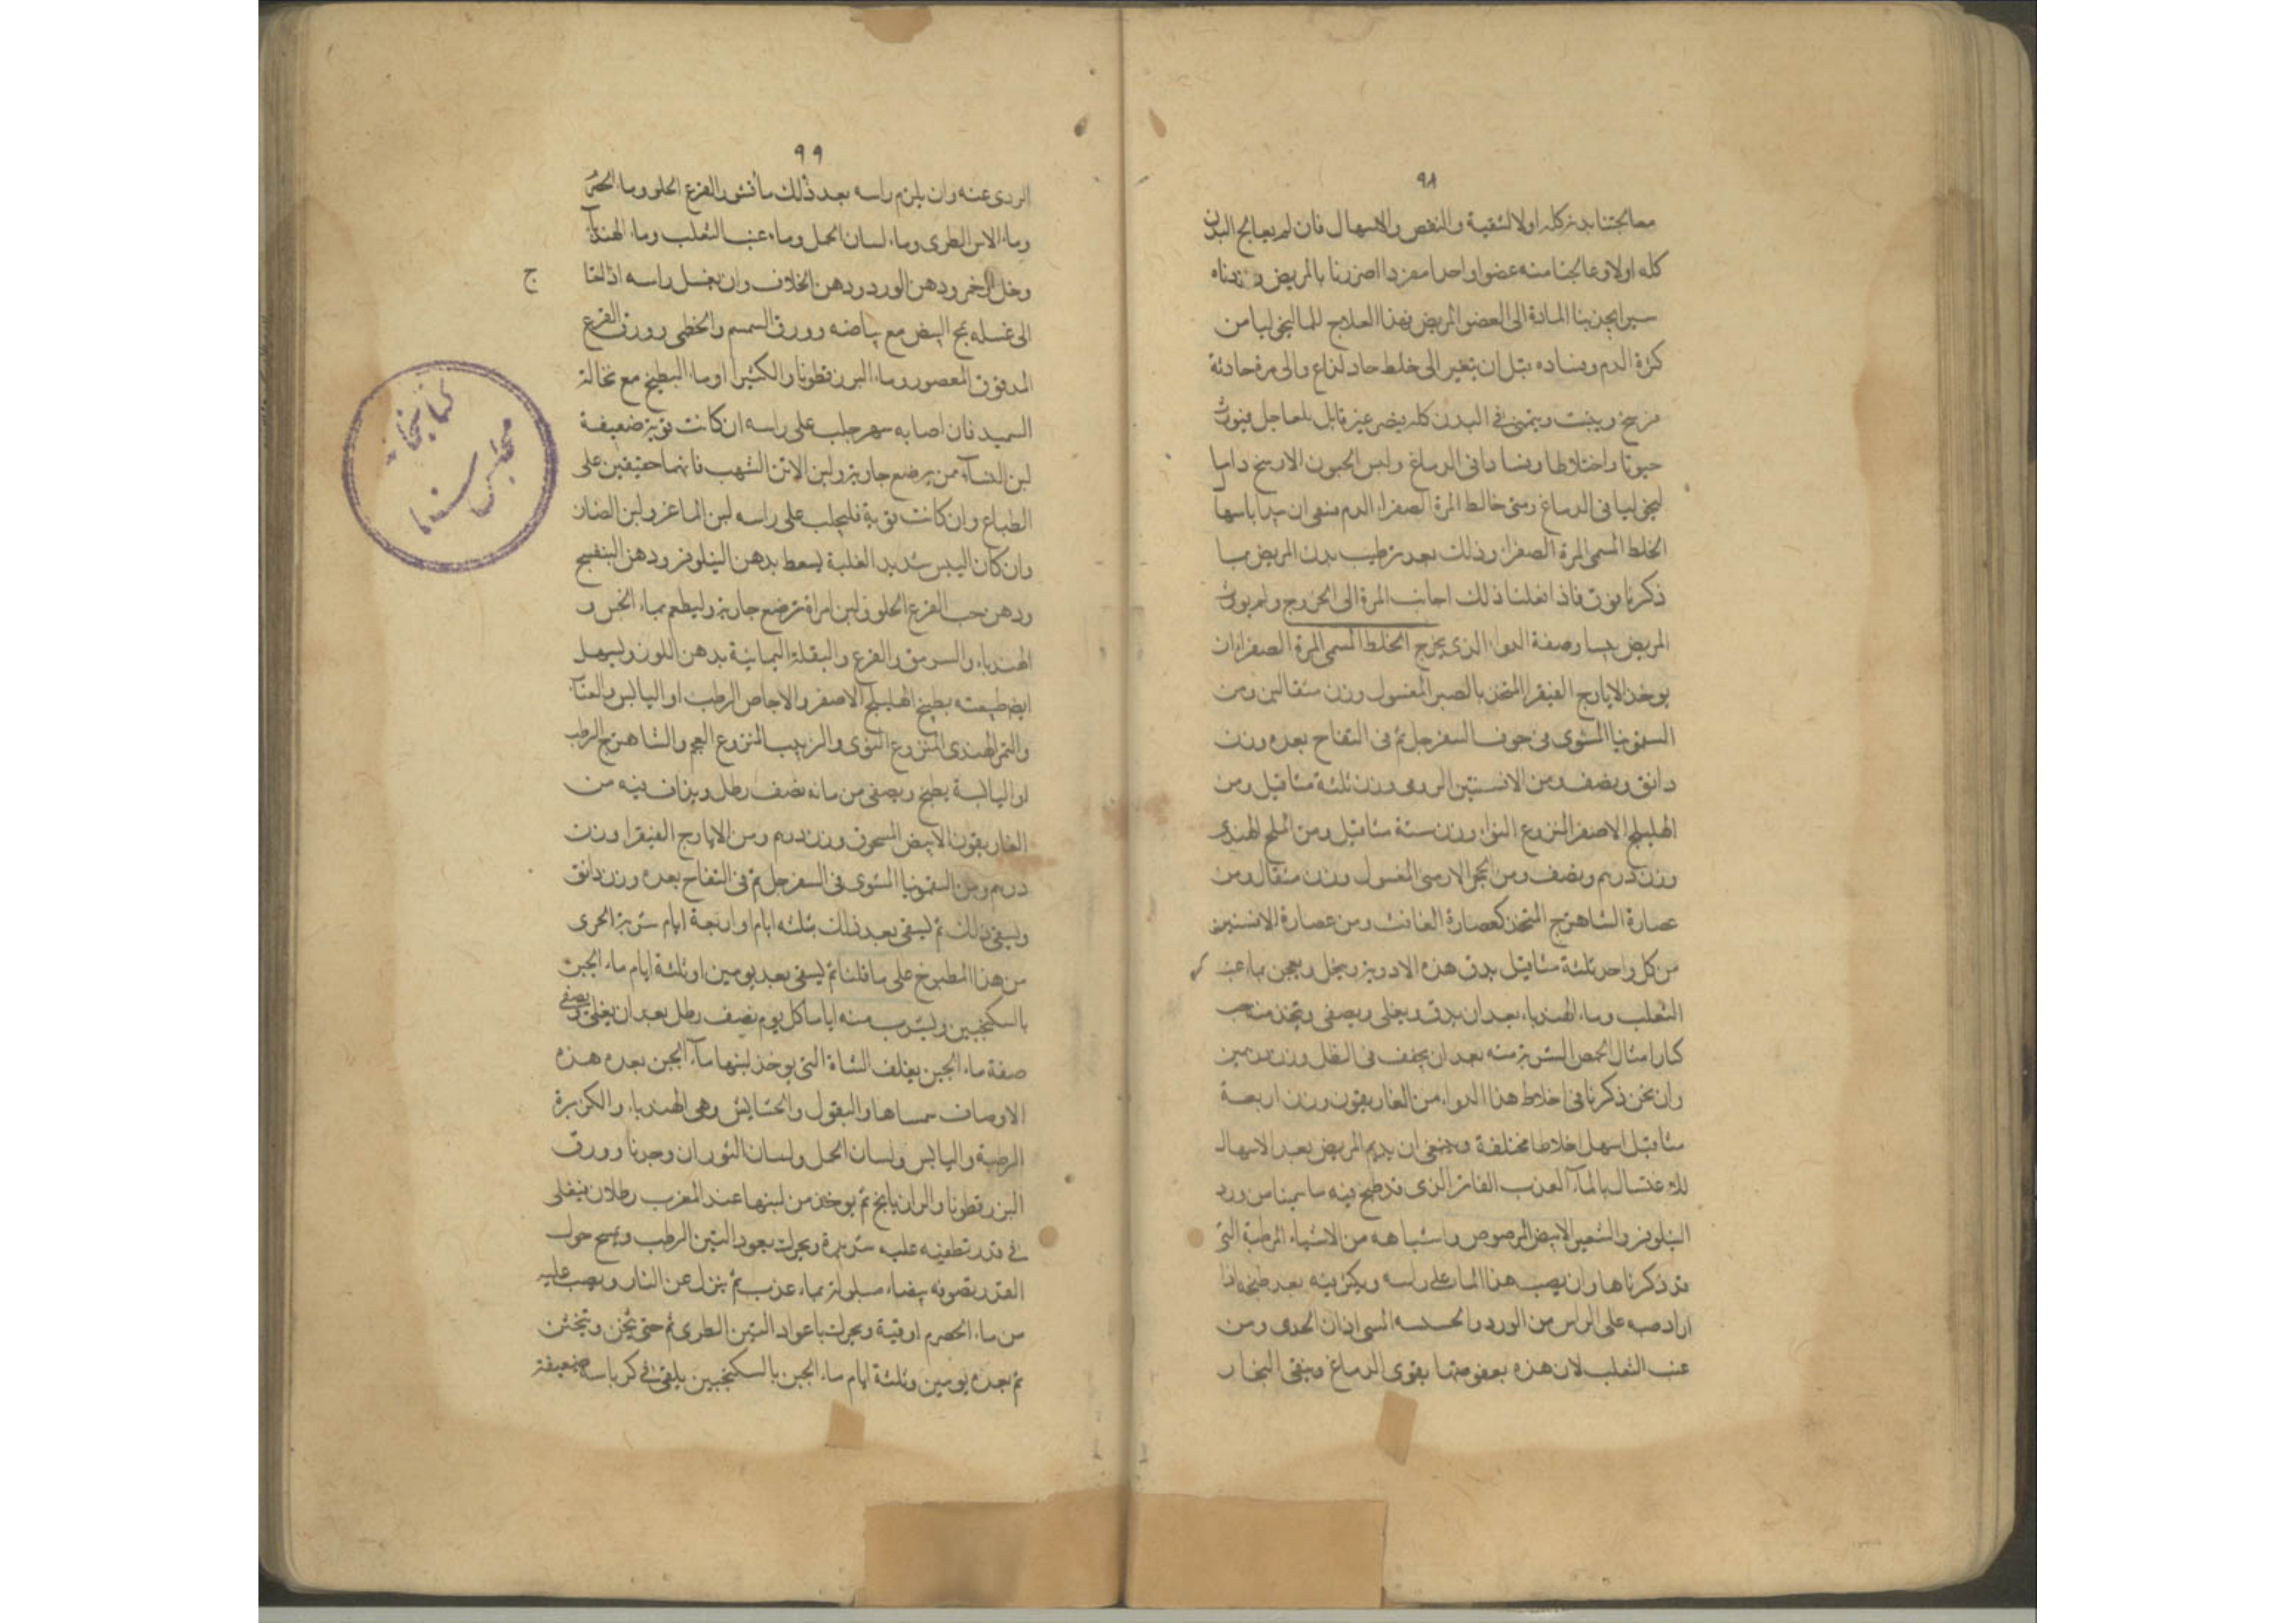 ٩٨
معالجتنا بدنه كله اولا لتنقية والنقص والاسهال فان لم يعالج البدن
كله اولا وعالجنا منه عضوا واحدا مفردا اضررنا بالمريض وزدناه
المادة الى العضو المريض فهذا العلاج للماليخوليا من
كثرة الدم وفساده قبل ان يتغير الى خلط حاد لذاع والى مرة حادثة
ويثبت في البدن كله يصير غير قابل بلعاجل فيورث
جنونا واختلاطا وفسادا في الدماغ وليس الجنون الا
في الدماغ ومتى خالط المرة الصفراء الدم
الخلط المسمى المرة الصفراء وذلك بعد ترطيب بدن المريض بما
ذكرنا فوق فاذا فعلنا ذلك اجابت المرة الى الخروج ولم يورث
المريض يبسا وصفة الدواء الذى يخرج الخلط المسمى المرة الصفراء ان
يوخذ الايارج الفيقرا المتخذ بالصبر المغسول وزن مثقالين ومن
السقمونيا المشوى فى جوف السفرجل ثم فى التفاح بعده وزن
دانق ونصف ومن الافسنتين الرومى وزن ثلثة مثاقيل ومن
الهليلج الاصفر المنزوع النوا وزن ستة مثاقيل ومن الملح الهندى
وزن درهم ونصف ومن الحجر الارمنى المغسول وزن مثقال ومن
عصارة الشاهترج المتخذ كعصارة الغافت ومن عصارة الافسنتين
من كل واحد ثلثة مثاقيل يدق هذه الادوية وينخل ويعجن بماء عنب
الثعلب وماء الهندباء بعد ان يدق ويغلى ويصفى ويتخذ منه حب
كبارا مثال الحمص الشربة منه بعد ان يجفف فى الظل وزن درهمين
وان نحن ذكرنا فى اخلاط هذا الدواء من الغاريقون وزن اربعة
مثاقيل اسهل اخلاطا مختلفة وينبغى ان يديم المريض بعد الاسهال
للاغتسال بالماء العذب الفاتر الذى قد طبخ فيه ما سمينا من ورد
النيلوفر والشعير الابيض المرضوض واشباهه من الاشياء المرطبة التى
قد ذكرناها وان يصب هذا الماء على راسه ويكثر فيه بعد طبخه اذا
اراد صبه على الراس من الورد المسمى اذان الجدى ومن
عنب الثعلب لان هذه بعفوصتها يقوى الدماغ وينفى البخار
٩٩
الردى عنه وان يلزم راسه بعد ذلك ماء قشور القرع الحلو وماء الخس
وماء الاس الطرى وماء لسان الحمل وماء عنب الثعلب وماء الهندباء
وخل الخمر ودهن الورد ودهن الخلاف وان يغسل راسه اذا احتاج
الى غسله بمح البيض مع بياضه وورق السمسم والخطمى وورق القرع
المدقوق المعصور وماء البزرقطونا والكثيرا او ماء البطيخ مع نخالة
السميد فان اصابه سهر حلب على راسه ان كانت قوية ضعيفة
لبن النساء ممن يرضع جارية ولبن الاتن الشهب فانهما خفيفين على
الطباع وان كانت قوية فليحلب على راسه لبن الماعز ولبن الضان
وان كان اليبس شديد الغلبة يسعط بدهن النيلوفر ودهن البنفسج
ودهن حب القرع الحلو ولبن امراة ترضع جارية وليطعم بماء الخس و
الهندباء والسرمق والقرع والبقلة اليمانية بدهن اللوز وليسهل
ايضا طبيعته بطبيخ الهليلج الاصفر والاجاص الرطب او اليابس والعناب
والتمر الهندى المنزوع النوى والزبيب المنزوع العجم والشاهترج الرطب
او اليابسة يطبخ ويصفى من مائه نصف رطل ويذاف فيه من
الغاريقون الابيض المسحوق وزن درهم ومن الايارج الفيقرا وزن
درهم ومن السقمونيا المشوى فى السفرجل ثم فى التفاح بعده وزن دانق
ويسقى ذلك ثم يسقى بعد ذلك بثلثة ايام او اربعة ايام شربة اخرى
من هذا المطبوخ على ما قلنا ثم يسقى بعد يومين او ثلثة ايام ماء الجبن
بالسكنجبين ويشرب منه اياما كل يوم نصف رطل بعد ان يغلى ويصفى
صفة ماء الجبن يعلف الشاة التى يوخذ لبنها ماء الجبن بعده هذه
الاوصاف والبقول والحشايش وهى الهندباء والكزبرة
الرطبة واليابس ولسان الحمل ولسان الثور ان وجدنا وورق
البزرقطونا والرازيانج ثم يوخذ من لبنها عند المغرب رطلان فيغلى
فى قدر نظيفة عليه ويحرك بعود التين الرطب ويمسح حول
القدر بصوفة بيضاء مبلولة بماء عذب ثم ينزل عن النار ويصب عليه
من ماء الحصرم اوقية ويحرك باعواد التين الطرى ثم حتى يثخن
ثم بعده يومين وثلثة ايام ماء الجبن بالسكنجبين يلقى فى كرباسة ضعيفة
ج
كتابخانه
مجلس سنا